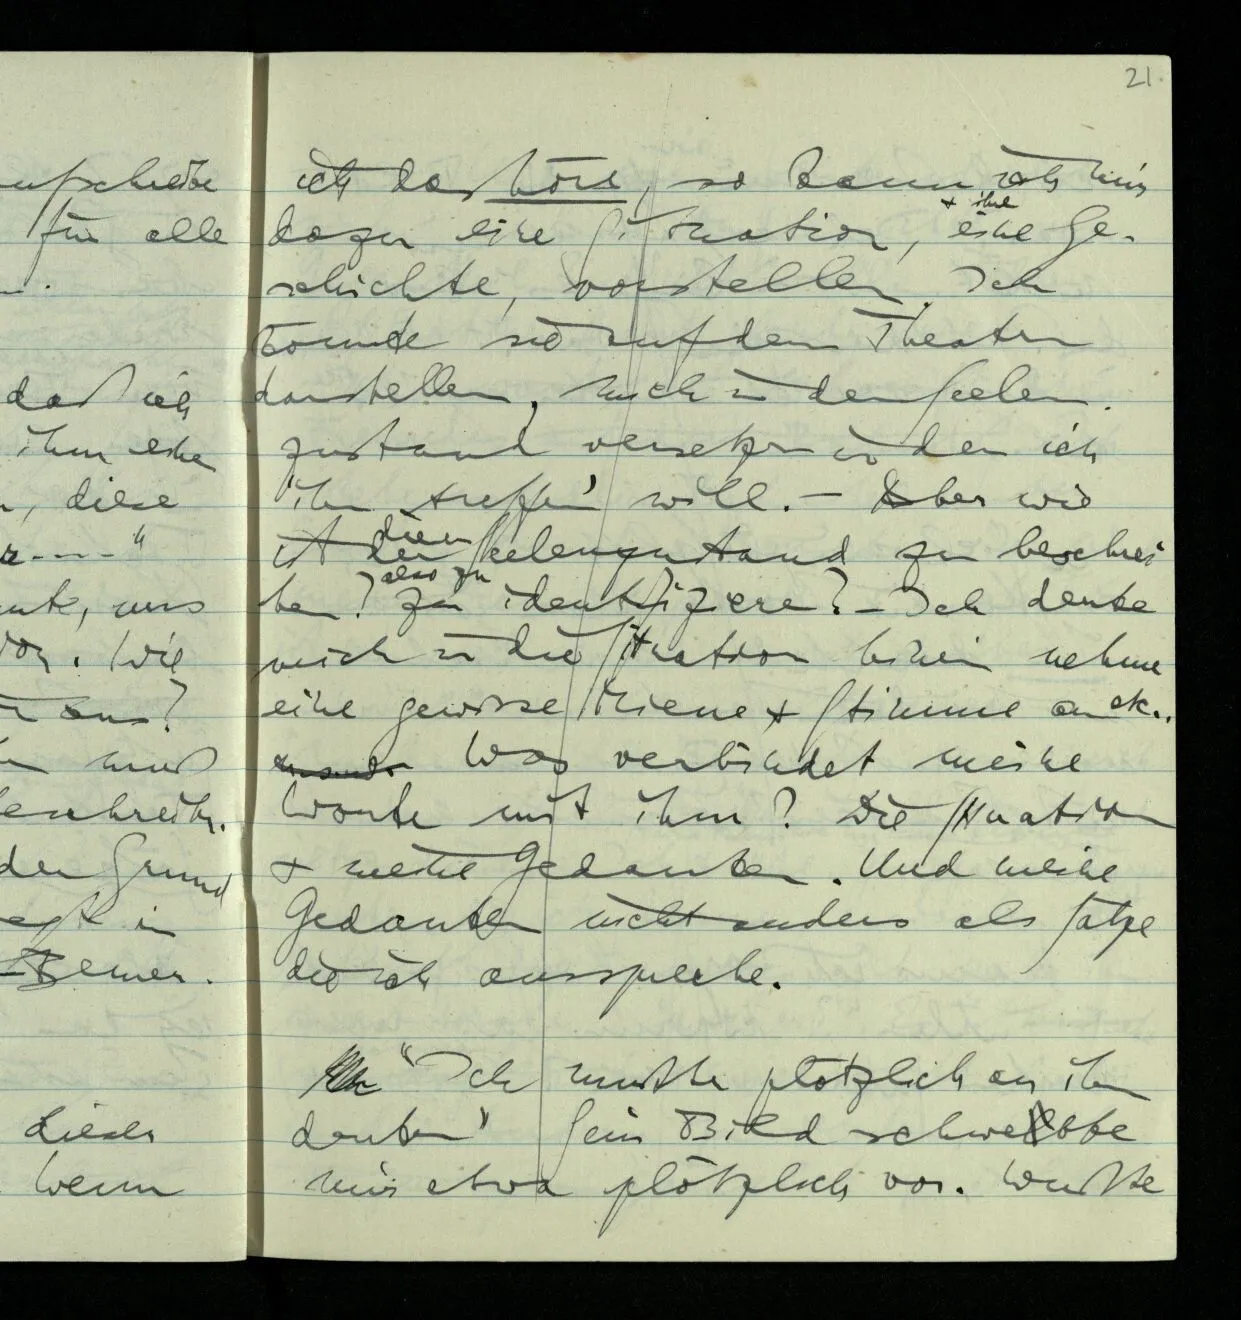 21.
aufschreibe
für alle
daß ich
ihm eine
, diese
----"
uns
vor. Wie
aus?
muß
beschreiben.
der Grund
in
dieser
Wenn
ich das höre, so kann ich mir
dazu eine Situation, + ihre eine Ge-
schichte, vorstellen. Ich
könnte sie auf dem Theater
darstellen, mich in den Seelen-
zustand versetzen in dem ich
'ihn treffen' will. – Aber wie
ist der diesen Seelenzustand zu beschrei
ben? also zu zu identifizieren? – Ich denke
mich in die Situation hinein nehme
eine gewisse Miene + Stimme an etc..
Was verbindet meine
Worte mit ihm? Die Situation
+ meine Gedanken. Und meine
Gedanken nicht anders als Sätze
die ich ausspreche.
"Ich mußte plötzlich an ihn
denken" Sein Bild schwebte
mir etwa plötzlich vor. Wußte